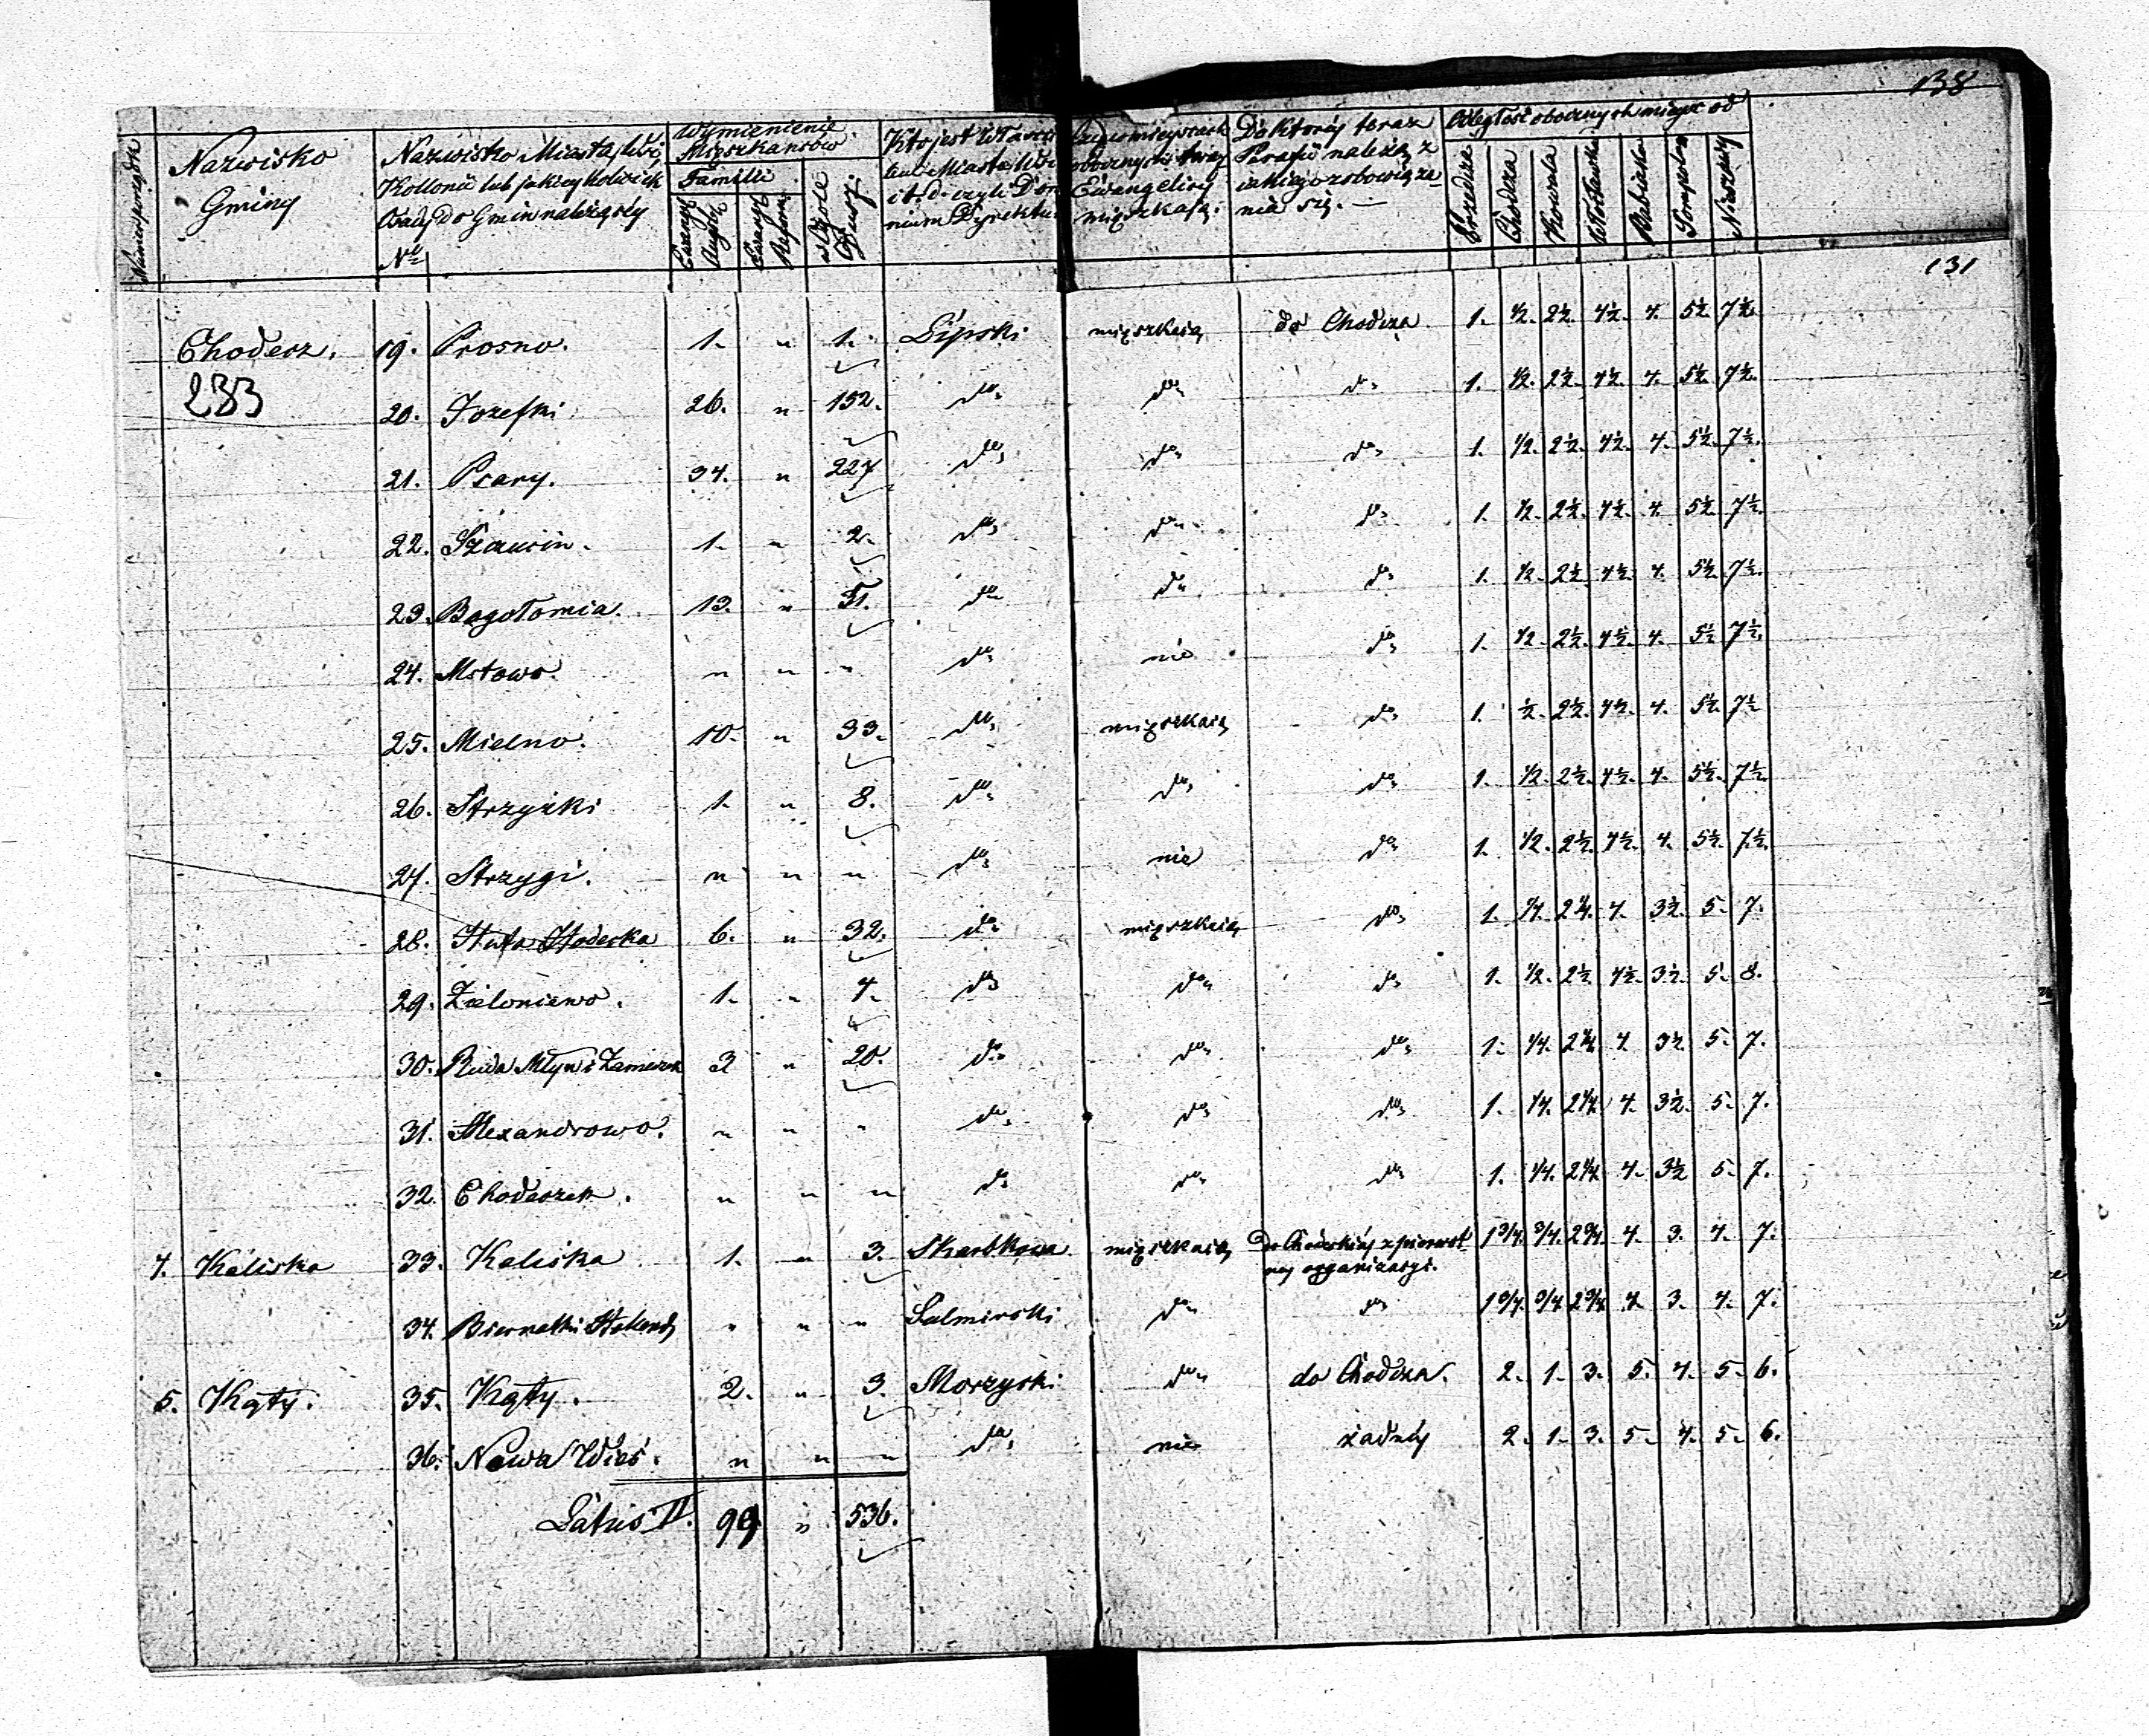 138
Nazwisko Gminy
Nazwisko Miasta, Wsi, Kollonii lub jakiey kolwiek Osady do Gmin należący
Nro
Wymienienie Mieszkańców
Familii
w Ogóle Duszy
Kto jest
Ewangelicy mięszkają.
Do ktoréy teraz Parafii należą, z iakiego zobowiąza nia się. —
Odległość obocznych mieysc od
Przedcza
Chodcza
Kowala
Babiaka
Sompolna
Nieszawy
131
Chodecz. 19. Prosno. 1. " 1. Lipski mięszkaią do Chodcza 1. ½. 2½. 4½. 4. 5½. 7½.
283
20. Jozefki 26. " 152. do do do 1. ½. 2½. 4½. 4. 5½. 7½.
21. Psary. 34. " 227 do do do 1. ½. 2½. 4½. 4. 5½. 7½.
22. Szczawin. 1. " 2. do do do 1. ½. 2½. 4½. 4. 5½. 7½.
23. Bogołomia. 13. " 51. do do do 1. ½. 2½. 4½. 4. 5½. 7½.
24. Mstowo. " " " do nie do 1. ½. 2½. 4½. 4. 5½. 7½.
25. Mielno. 10. " 33. do mięszkaią do 1. ½. 2½. 4½. 4. 5½. 7½
26. Strzyżki 1. " 8. do do do 1. ½. 2½. 4½. 4. 5½. 7½.
27. Strzygi. " " " do nie do 1. ½. 2½. 4½. 4. 5½. 7½.
28. Huta 6. " 32. do mięszkaią do 1. ¼. 2¼. 4. 3½. 5. 7.
29. Zieloniewo. 1. " 4. do do do 1. ½. 2½. 4½. 3½. 5. 8.
30. Ruda Młyn i 3 " 20. do do do 1. ¼. 2¼. 4. 3½. 5. 7.
31. Alexandrowo. " " " do do do 1. ¼. 2¼. 4. 3½. 5. 7.
32. Chodeczek. " " " do do do 1. ¼. 2¼. 4. 3½ 5. 7.
4. Kaliska 33. Kaliska 1. " 3. Skarbkowa mięszkaią do z pierwot
ney organizacyi. 1¾. ¾. 2¾. 4. 3. 4. 7.
34. Biernatki " " " do do 1¾. ¾. 2¾. 4. 3. 4. 7.
5. Kąty. 35. Kąty. 2. " 3. Morzycki do do Chodcza. 2. 1. 3. 5. 4. 5. 6.
36. Nowa Wieś. " " " do nie żadnéy 2. 1. 3. 5. 4. 5. 6.
Latus II. 99 " 536.